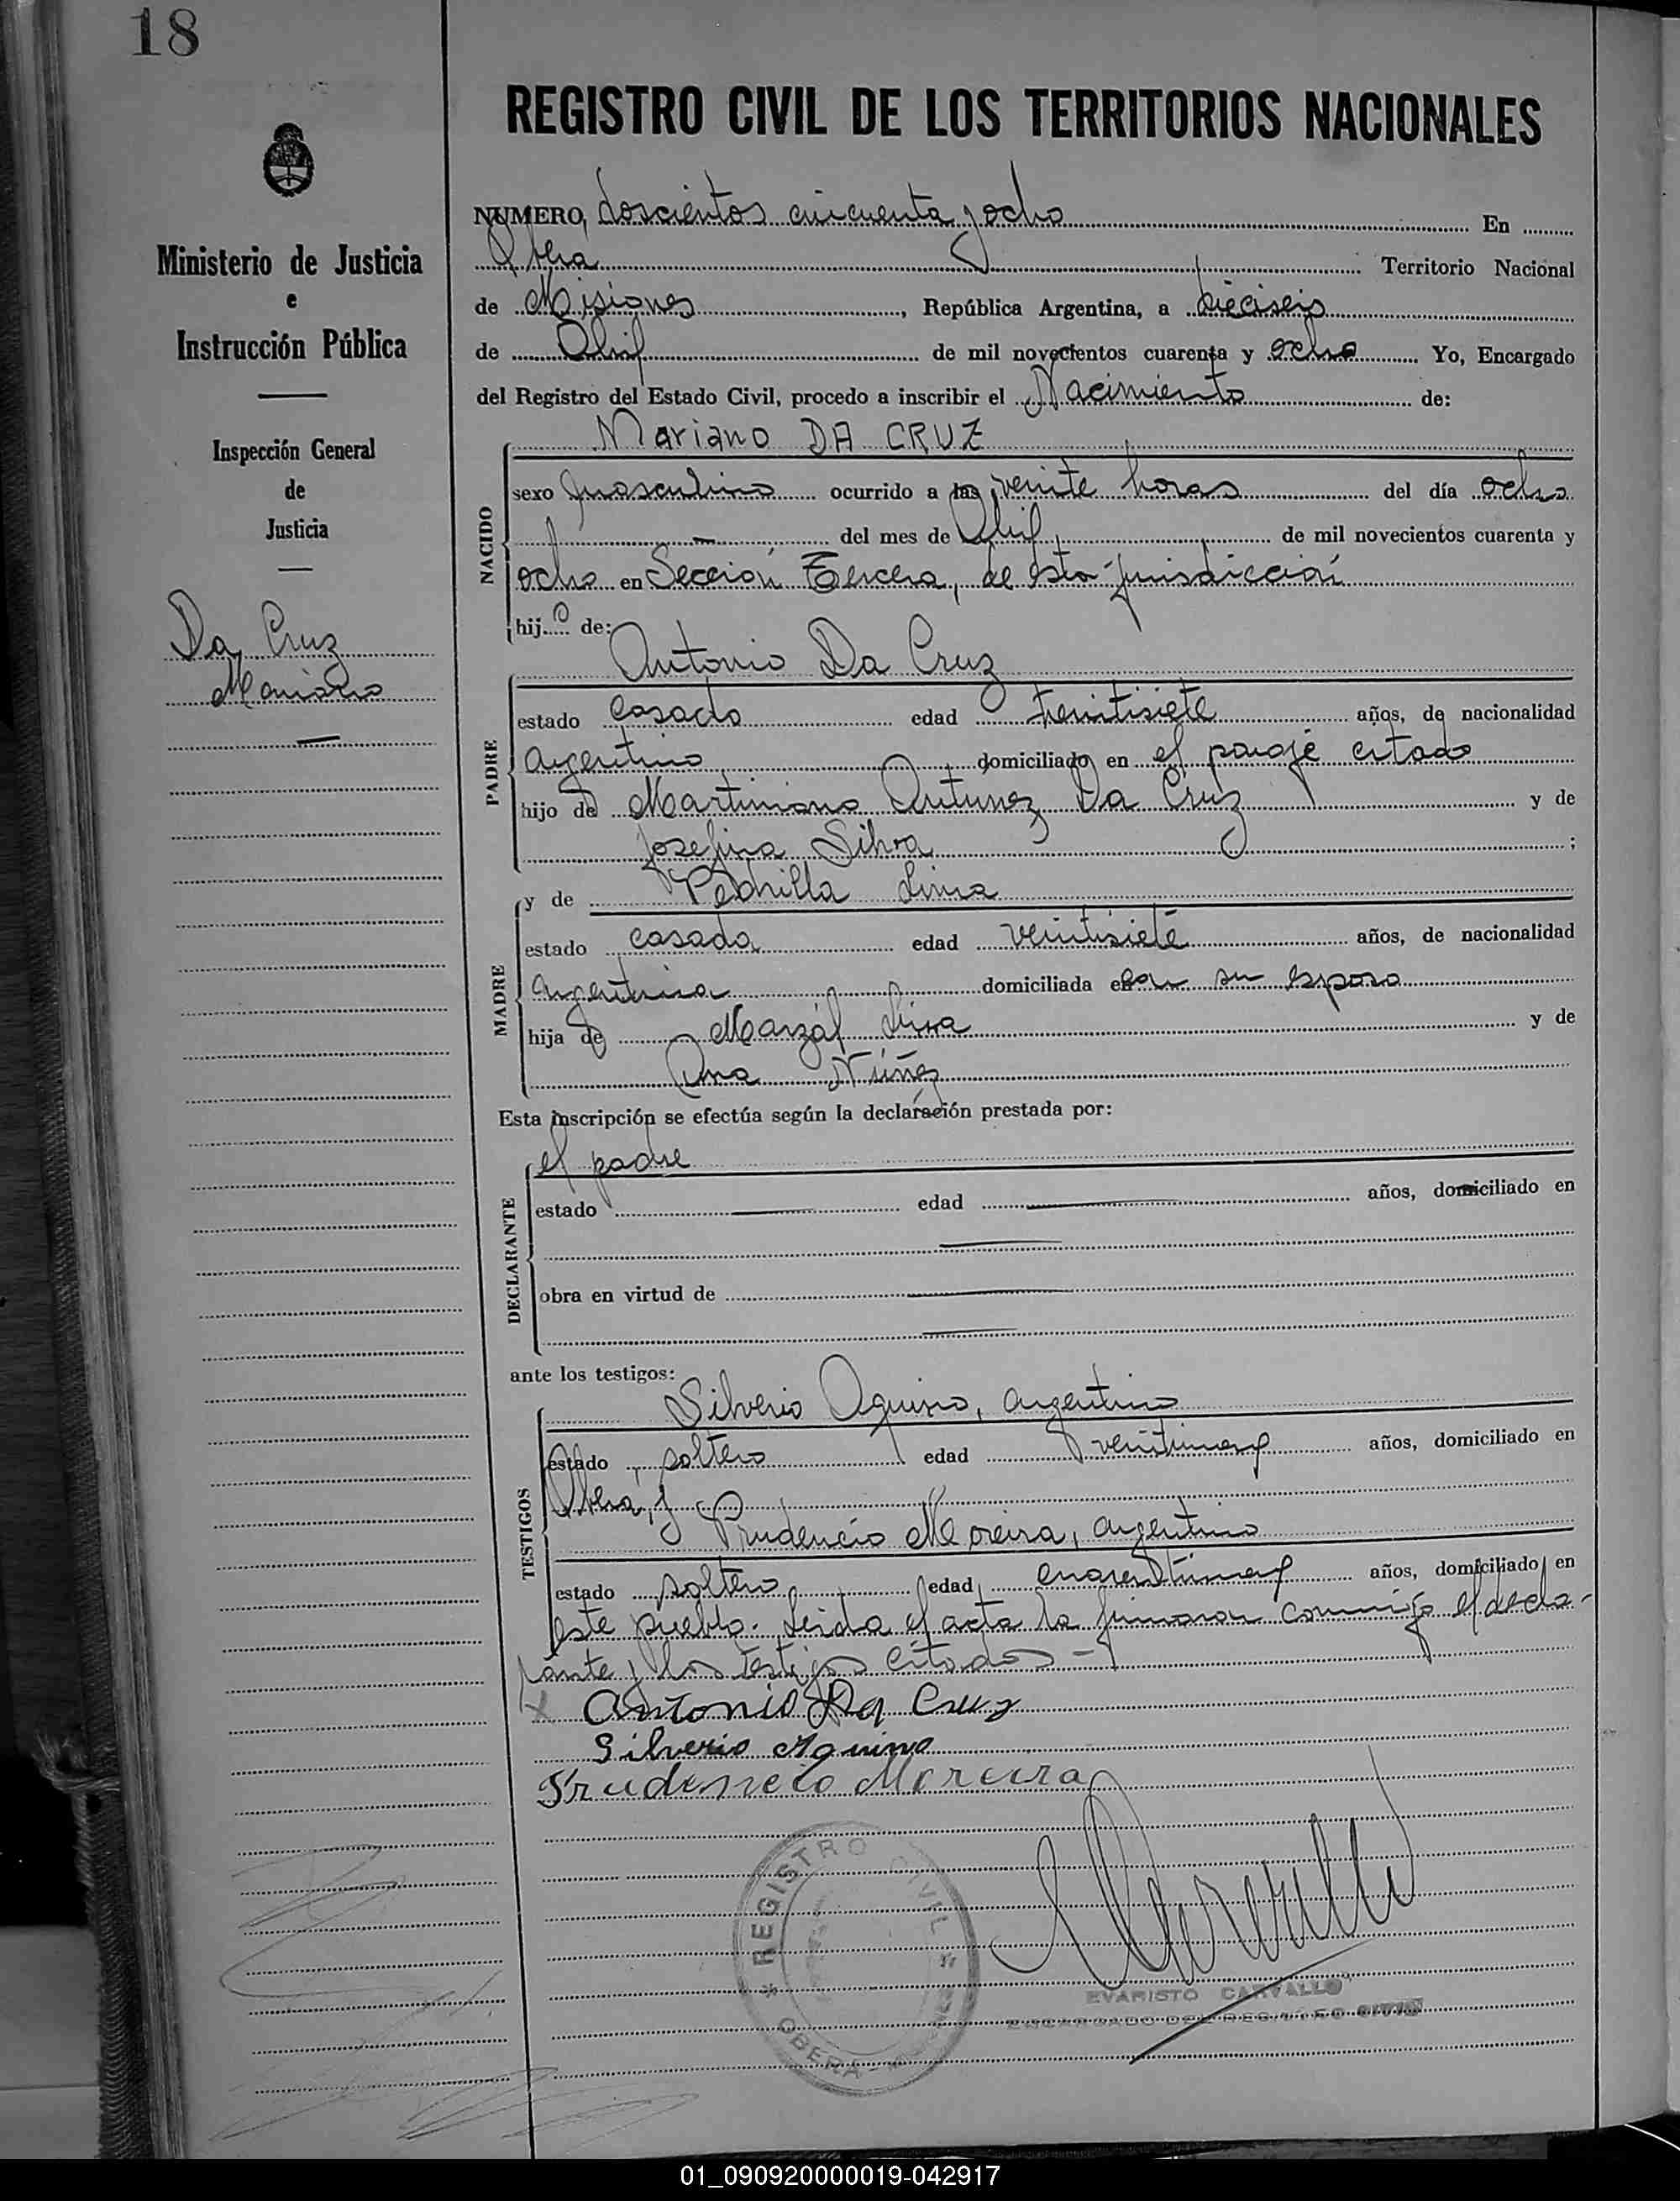 18
REGISTRO CIVIL DE LOS TERRITORIOS NACIONALES
Ministerio de Justicia
e
Instrucción Pública
Inspección General
de
Justicia
Da Cruz
Mariano
NUMERO, doscientos cincuenta y ocho En
Oberá Territorio Nacional
de Misiones, República Argentina, a dieciseis
de Abril de mil novecientos cuarenta y ocho Yo, Encargado
del Registro del Estado Civil, procedo a inscribir el Nacimiento de:
Mariano DA CRUZ
NACIDO
sexo masculino ocurrido a las veinte horas del día ocho
del mes de Abril de mil novecientos cuarenta y
ocho en Sección Tercera, de esta jurisdicción
hijo de:
Antonio Da Cruz
PADRE
estado casado edad treintisiete años, de nacionalidad
argentino domiciliado en el paraje citado
hijo de Martimiano Antunez Da Cruz y de
Josefina Silva ;
y de Petrilla Lima
MADRE
estado casada edad veintisiete años, de nacionalidad
argentina domiciliada con su esposo
hija de Marzál Lima y de
Ana Núñez
Esta inscripción se efectúa según la declaración prestada por:
el padre
DECLARANTE
estado edad años, domiciliado en
obra en virtud de
ante los testigos:
Silverio Aquino, argentino
TESTIGOS
estado soltero edad años, domiciliado en
Oberá, y
Prudencio Moreira, argentino
estado soltero edad años, domiciliado en
este pueblo. Leida el acta la firmaron conmigo el decla-
rante y los testigos citados -
x Antonio Da Cruz
Silverio Aquino
Prudencio Moreira
REGISTRO CIVIL
OBERA - MISIONES
EVARISTO CARVALLO
ENCARGADO DEL REGISTRO CIVIL
01_090920000019-042917